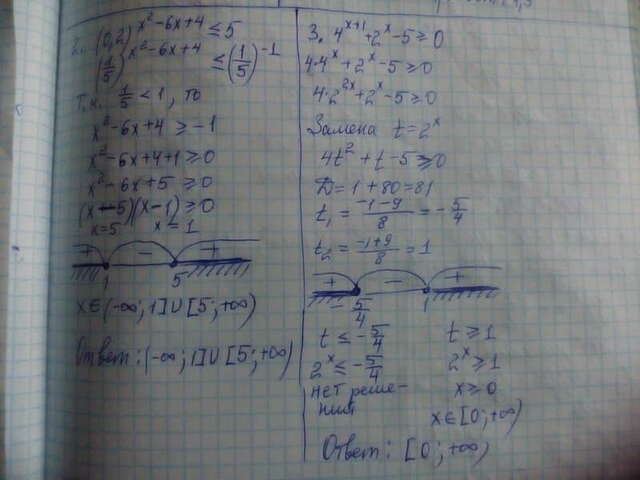 2. (0,2)^(x²-6x+4) ≤ 5
(1/5)^(x²-6x+4) ≤ (1/5)^(-1)
Т.к. 1/5 < 1, то
x²-6x+4 ≥ -1
x²-6x+4+1 ≥ 0
x²-6x+5 ≥ 0
(x-5)(x-1) ≥ 0
x=5 x=1
+ - +
1 5
x∈(-∞;1]∪[5;+∞)
Ответ: (-∞;1]∪[5;+∞)
3. 4^(x+1)+2^x-5≥0
4·4^x+2^x-5≥0
4·2^(2x)+2^x-5≥0
Замена t=2^x
4t²+t-5≥0
D=1+80=81
t₁=(-1-9)/8=-5/4
t₂=(-1+9)/8=1
+ - +
-5/4 1
t≤-5/4 t≥1
2^x≤-5/4 2^x≥1
нет реше- x≥0
ния x∈[0;+∞)
Ответ: [0;+∞)